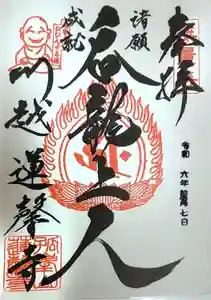 奉拝
諸願
成就
呑龍上人
川越蓮馨寺
令和 六年 七日